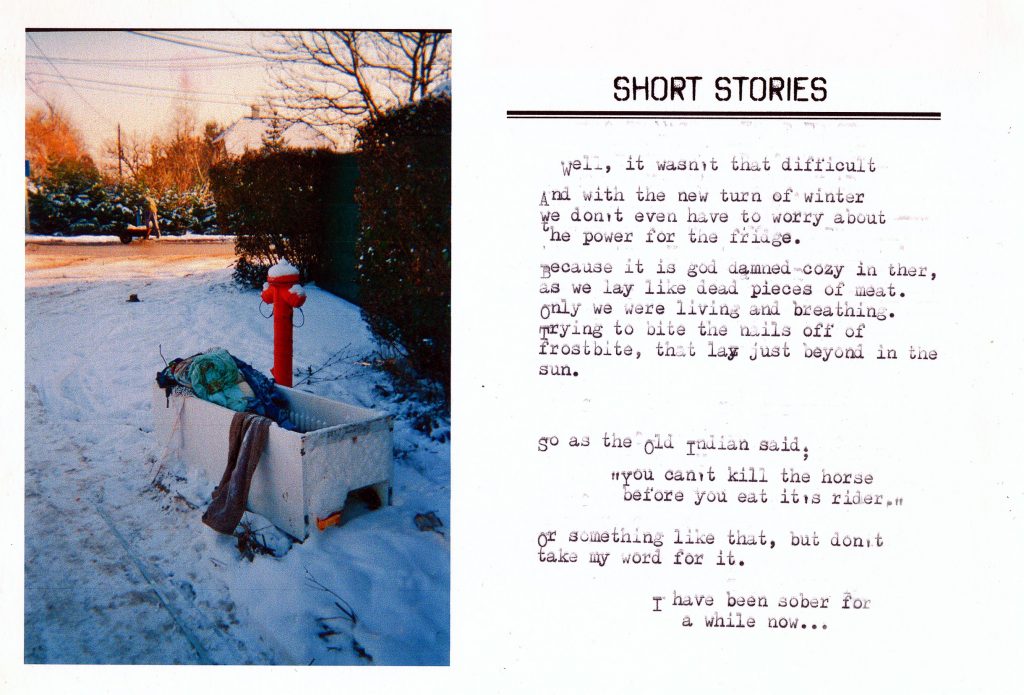 SHORT STORIES
Well, it wasn't that difficult
And with the new turn of winter
we don't even have to worry about
the power for the fridge.
Because it is god damned cozy in ther,
as we lay like dead pieces of meat.
Only we were living and breathing.
Trying to bite the nails off of
frostbite, that lay just beyond in the
sun.
So as the Old Indian said,
"you can't kill the horse
before you eat it's rider."
Or something like that, but don't
take my word for it.
I have been sober for
a while now...